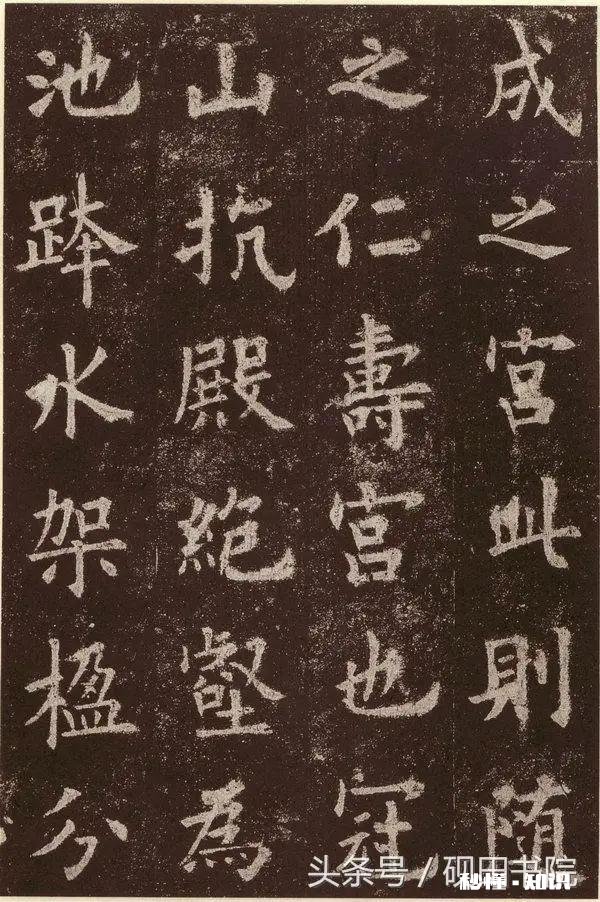 成之宮此則随
之仁壽宮也冠
山抗殿絶壑為
池跨水架楹分
头条号／砚田书院
秒懂·知识